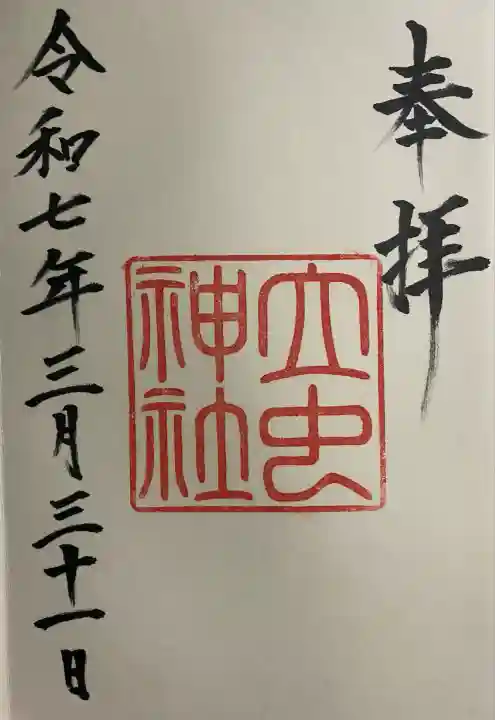 奉拝
立虫神社
令和七年三月三十一日